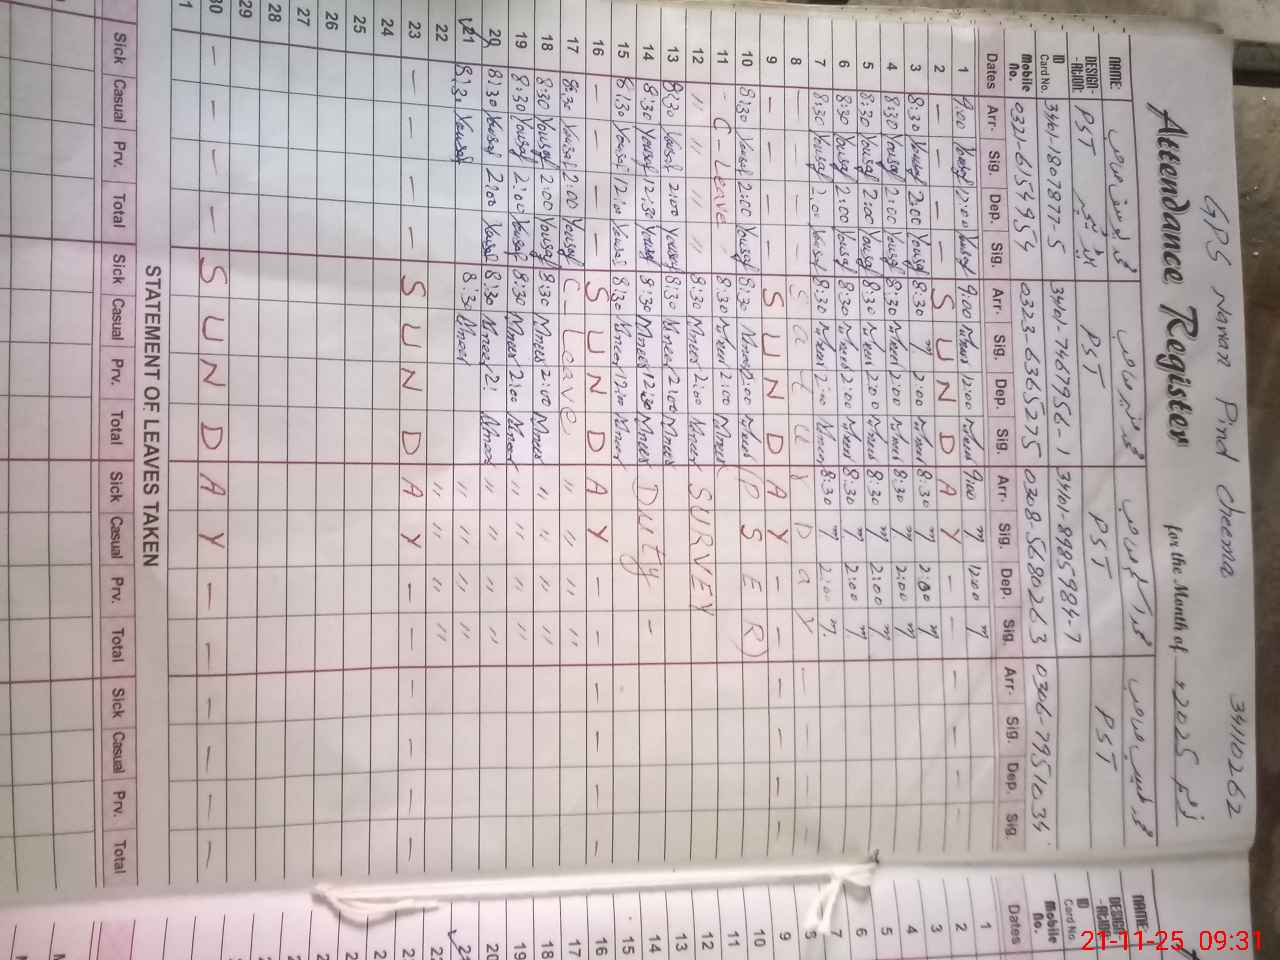 GPS Naman Pind Cheema 34110262
Attendance Register for the Month of نومبر 2025ء
NAME: محمد یوسف صاحب محمد منیر صاحب
DESIGN-ATION: PST PST PST PST
ID Card No. 3461-1807877-5 3461-7467956-1 3461-8985984-7
Mobile No. 0321-6154954 0323-6365275 0308-5680263 0306-7951034
Dates Arr. Sig. Dep. Sig. Arr. Sig. Dep. Sig. Arr. Sig. Dep. Sig. Arr. Sig. Dep. Sig.
1 9:00 Yousaf 12:00 Yousaf 9:00 Muneer 12:00 Muneer 9:00 12:00
2 — — — — S U N D A Y — — — — — —
3 8:30 Yousaf 2:00 Yousaf 8:30 2:00 Muneer 8:30 2:00
4 8:30 Yousaf 2:00 Yousaf 8:30 Muneer 2:00 Muneer 8:30 2:00
5 8:30 Yousaf 2:00 Yousaf 8:30 Muneer 2:00 Muneer 8:30 2:00
6 8:30 Yousaf 2:00 Yousaf 8:30 Muneer 2:00 Muneer 8:30 2:00
7 8:30 Yousaf 2:00 Yousaf 8:30 Muneer 2:00 Muneer 8:30 2:00
8 — — — — S a t u r D a y — — — —
9 — — — — S U N D A Y — — — — — —
10 8:30 Yousaf 2:00 Yousaf 8:30 Muneer 2:00 Muneer (P S E R)
11 - C - Leave 8:30 Muneer 2:00 Muneer
12 " " " " 8:30 Muneer 2:00 Muneer SURVEY
13 8:30 Yousaf 2:00 Yousaf 8:30 Muneer 2:00 Muneer
14 8:30 Yousaf 12:30 Yousaf 8:30 Muneer 12:30 Muneer Duty -
15 8:30 Yousaf 12:00 Yousaf 8:30 Muneer 12:00 Muneer
16 — — — — S U N D A Y — — — — — —
17 8:30 Yousaf 2:00 Yousaf C - Leave " " " "
18 8:30 Yousaf 2:00 Yousaf 8:30 Muneer 2:00 Muneer " " " "
19 8:30 Yousaf 2:00 Yousaf 8:30 Muneer 2:00 Muneer " " " "
20 8:30 Yousaf 2:00 Yousaf 8:30 Muneer 2: Muneer " " " "
21 8:30 Yousaf 8:30 Muneer " " " "
22 " " " "
23 — — — — S U N D A Y — — — — — —
24
25
26
27
28
29
30 — — — — S U N D A Y — — — — — —
STATEMENT OF LEAVES TAKEN
Sick Casual Prv. Total Sick Casual Prv. Total Sick Casual Prv. Total Sick Casual Prv. Total
NAME:
DESIGN-ATION:
ID Card No.
Mobile No.
Dates
1
2
3
4
5
6
7
8
9
10
11
12
13
14
15
16
17
19
20
21-11-25 09:31